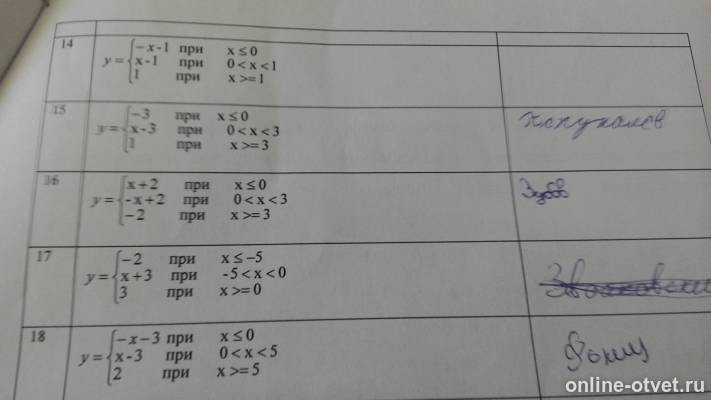 14
y = { -x-1 при x ≤ 0
x-1 при 0 < x < 1
1 при x >= 1
15
y = { -3 при x ≤ 0
x-3 при 0 < x < 3
1 при x >= 3
16
y = { x+2 при x ≤ 0
-x+2 при 0 < x < 3
-2 при x >= 3
Зубов
17
y = { -2 при x ≤ -5
x+3 при -5 < x < 0
3 при x >= 0
18
y = { -x-3 при x ≤ 0
x-3 при 0 < x < 5
2 при x >= 5
online-otvet.ru